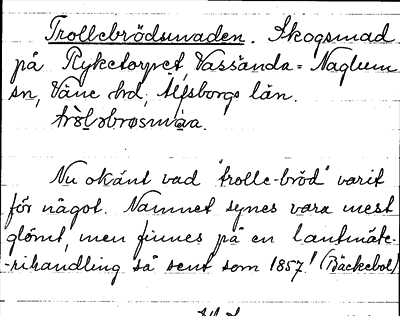 Trollebrödsmaden. Skogsmad
på Ryketorpet, Vassända=Naglum
sn, Väne hd, Älfsborgs län.
Nu okänt vad "trolle-bröd" varit
för något. Namnet synes vara mest
glömt, men finnes på en lantmäte-
-rihandling så sent som 1857! (Bäckebol)